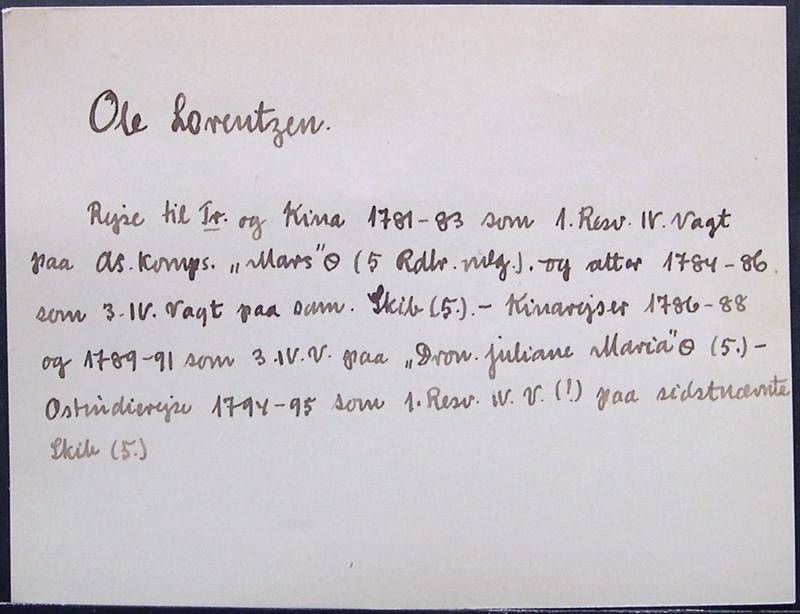 Ole Lorentzen.
Rejse til Tr. og Kina 1781-83 som 1. Resv. IV. Vagt
paa As. Komps. „Mars" ⊖ (5 Rdlr. mlg.). og atter 1784-86
som 3. IV. Vagt paa sam. Skib (5.). - Kinarejser 1786-88
og 1789-91 som 3. IV. V. paa „Dron. Juliane Maria" ⊖ (5.) -
Ostindierejse 1794-95 som 1. Resv. IV. V. (!) paa sidstnævnte
Skib (5.)